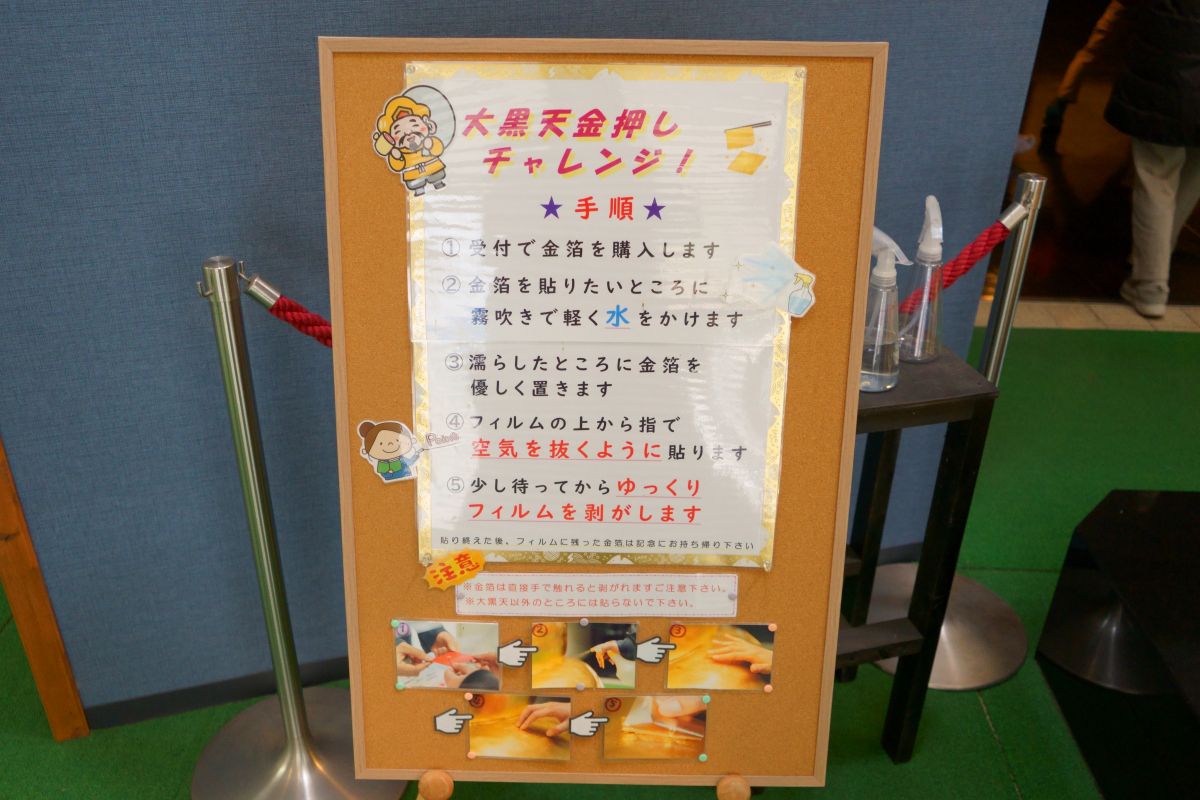 大黒天金押し
チャレンジ！
★手順★
①受付で金箔を購入します
②金箔を貼りたいところに
霧吹きで軽く水をかけます
③濡らしたところに金箔を
優しく置きます
④フィルムの上から指で
Point
空気を抜くように貼ります
⑤少し待ってからゆっくり
フィルムを剥がします
貼り終えた後、フィルムに残った金箔は記念にお持ち帰り下さい
注意
※金箔は直接手で触れると剥がれますご注意下さい。
※大黒天以外のところには貼らないで下さい。
① ② ③
④ ⑤